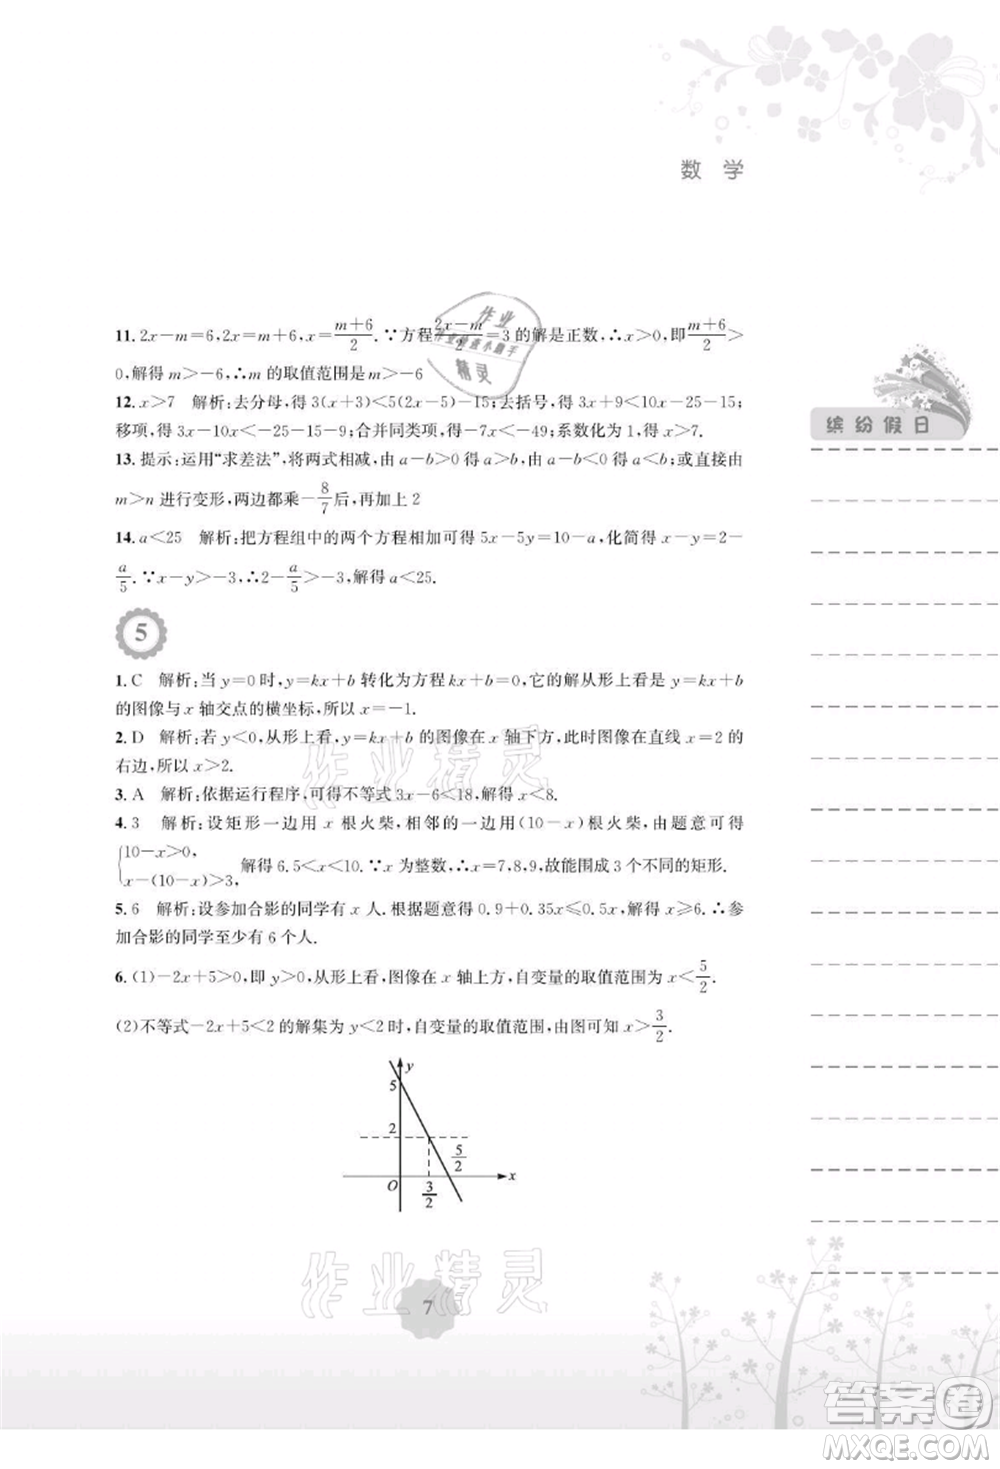 数 学
11.2x－m＝6,2x＝m＋6,x＝(m＋6)/2.∵方程(2x－m)/2＝3的解是正数,∴x＞0,即(m＋6)/2＞
0,解得 m＞－6,∴m的取值范围是m＞－6
12.x＞7 解析:去分母,得 3(x＋3)＜5(2x－5)－15;去括号,得 3x＋9＜10x－25－15;
移项,得 3x－10x＜－9－25－15;合并同类项,得－7x＜－49;系数化为1,得 x＞7.
13.提示:运用“求差法”,将两式相减,由 a－b＞0 得 a＞b;由 a－b＜0 得 a＜b;或直接由
m＞n 进行变形,两边都乘－8/7后,再加上 2
14.a＜25 解析:把方程组中的两个方程相加可得 5x－5y＝10－a,化简得 x－y＝2－
a/5.∵x－y＞－3,∴2－a/5＞－3,解得 a＜25.
5
1.C 解析:当 y＝0 时,y＝kx＋b 转化为方程kx＋b＝0,它的解从形上看是 y＝kx＋b
的图像与 x 轴交点的横坐标,所以 x＝－1.
2.D 解析:若 y＜0,从形上看,y＝kx＋b 的图像在 x 轴下方,此时图像在直线 x＝2 的
右边,所以 x＞2.
3.A 解析:依据运行程序,可得不等式 3x－6＜18,解得 x＜8.
4.3 解析:设矩形一边用 x 根火柴,相邻的一边用(10－x)根火柴,由题意可得
{10－x＞0,
x－(10－x)＞3, 解得 6.5＜x＜10.∵x 为整数,∴x＝7,8,9,故能围成 3 个不同的矩形.
5.6 解析:设参加合影的同学有 x 人.根据题意得 0.9＋0.35x≤0.5x,解得 x≥6.∴参
加合影的同学至少有 6 个人.
6.(1)－2x＋5＞0,即 y＞0,从形上看,图像在 x 轴上方,自变量的取值范围为 x＜5/2.
(2)不等式－2x＋5＜2 的解集为 y＜2时,自变量的取值范围,由图可知 x＞3/2.
y
5
2
5/2
O
3/2
x
7
缤纷假日
作业
精灵
作业精灵
作业精灵
答案圈
MXQE.COM